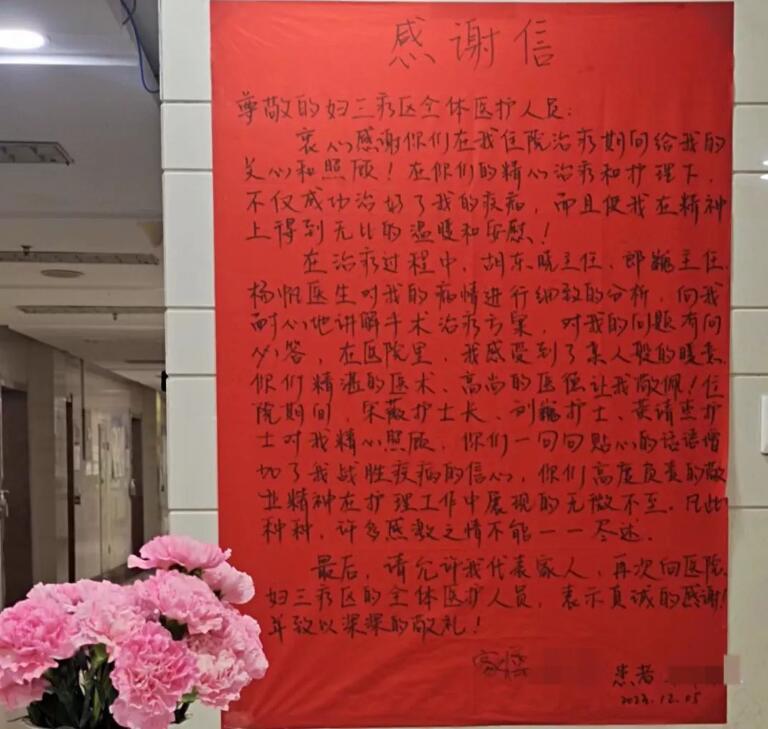 感谢信
尊敬的妇三疗区全体医护人员：
衷心感谢你们在我住院治疗期间给我的
关心和照顾！在你们的精心治疗和护理下，
不仅成功治好了我的疾病，而且使我在精神
上得到无比的温暖和安慰！
在治疗过程中，胡东晓主任、郎巍主任、
杨帆医生对我的病情进行细致的分析，向我
耐心地讲解手术治疗方案，对我的问题有问
必答，在医院里，我感受到了亲人般的暖意。
你们精湛的医术、高尚的医德让我敬佩！住
院期间，宋薇护士长、刘巍护士、黄靖惠护
士对我精心照顾，你们一句句贴心的话语增
加了我战胜疾病的信心，你们高度负责的敬
业精神在护理工作中展现的无微不至。凡此
种种，许多感激之情不能一一尽述。
最后，请允许我代表家人，再次向医院
妇三疗区的全体医护人员，表示真诚的感谢！
并致以深深的敬礼！
家属
患者
2023.12.05